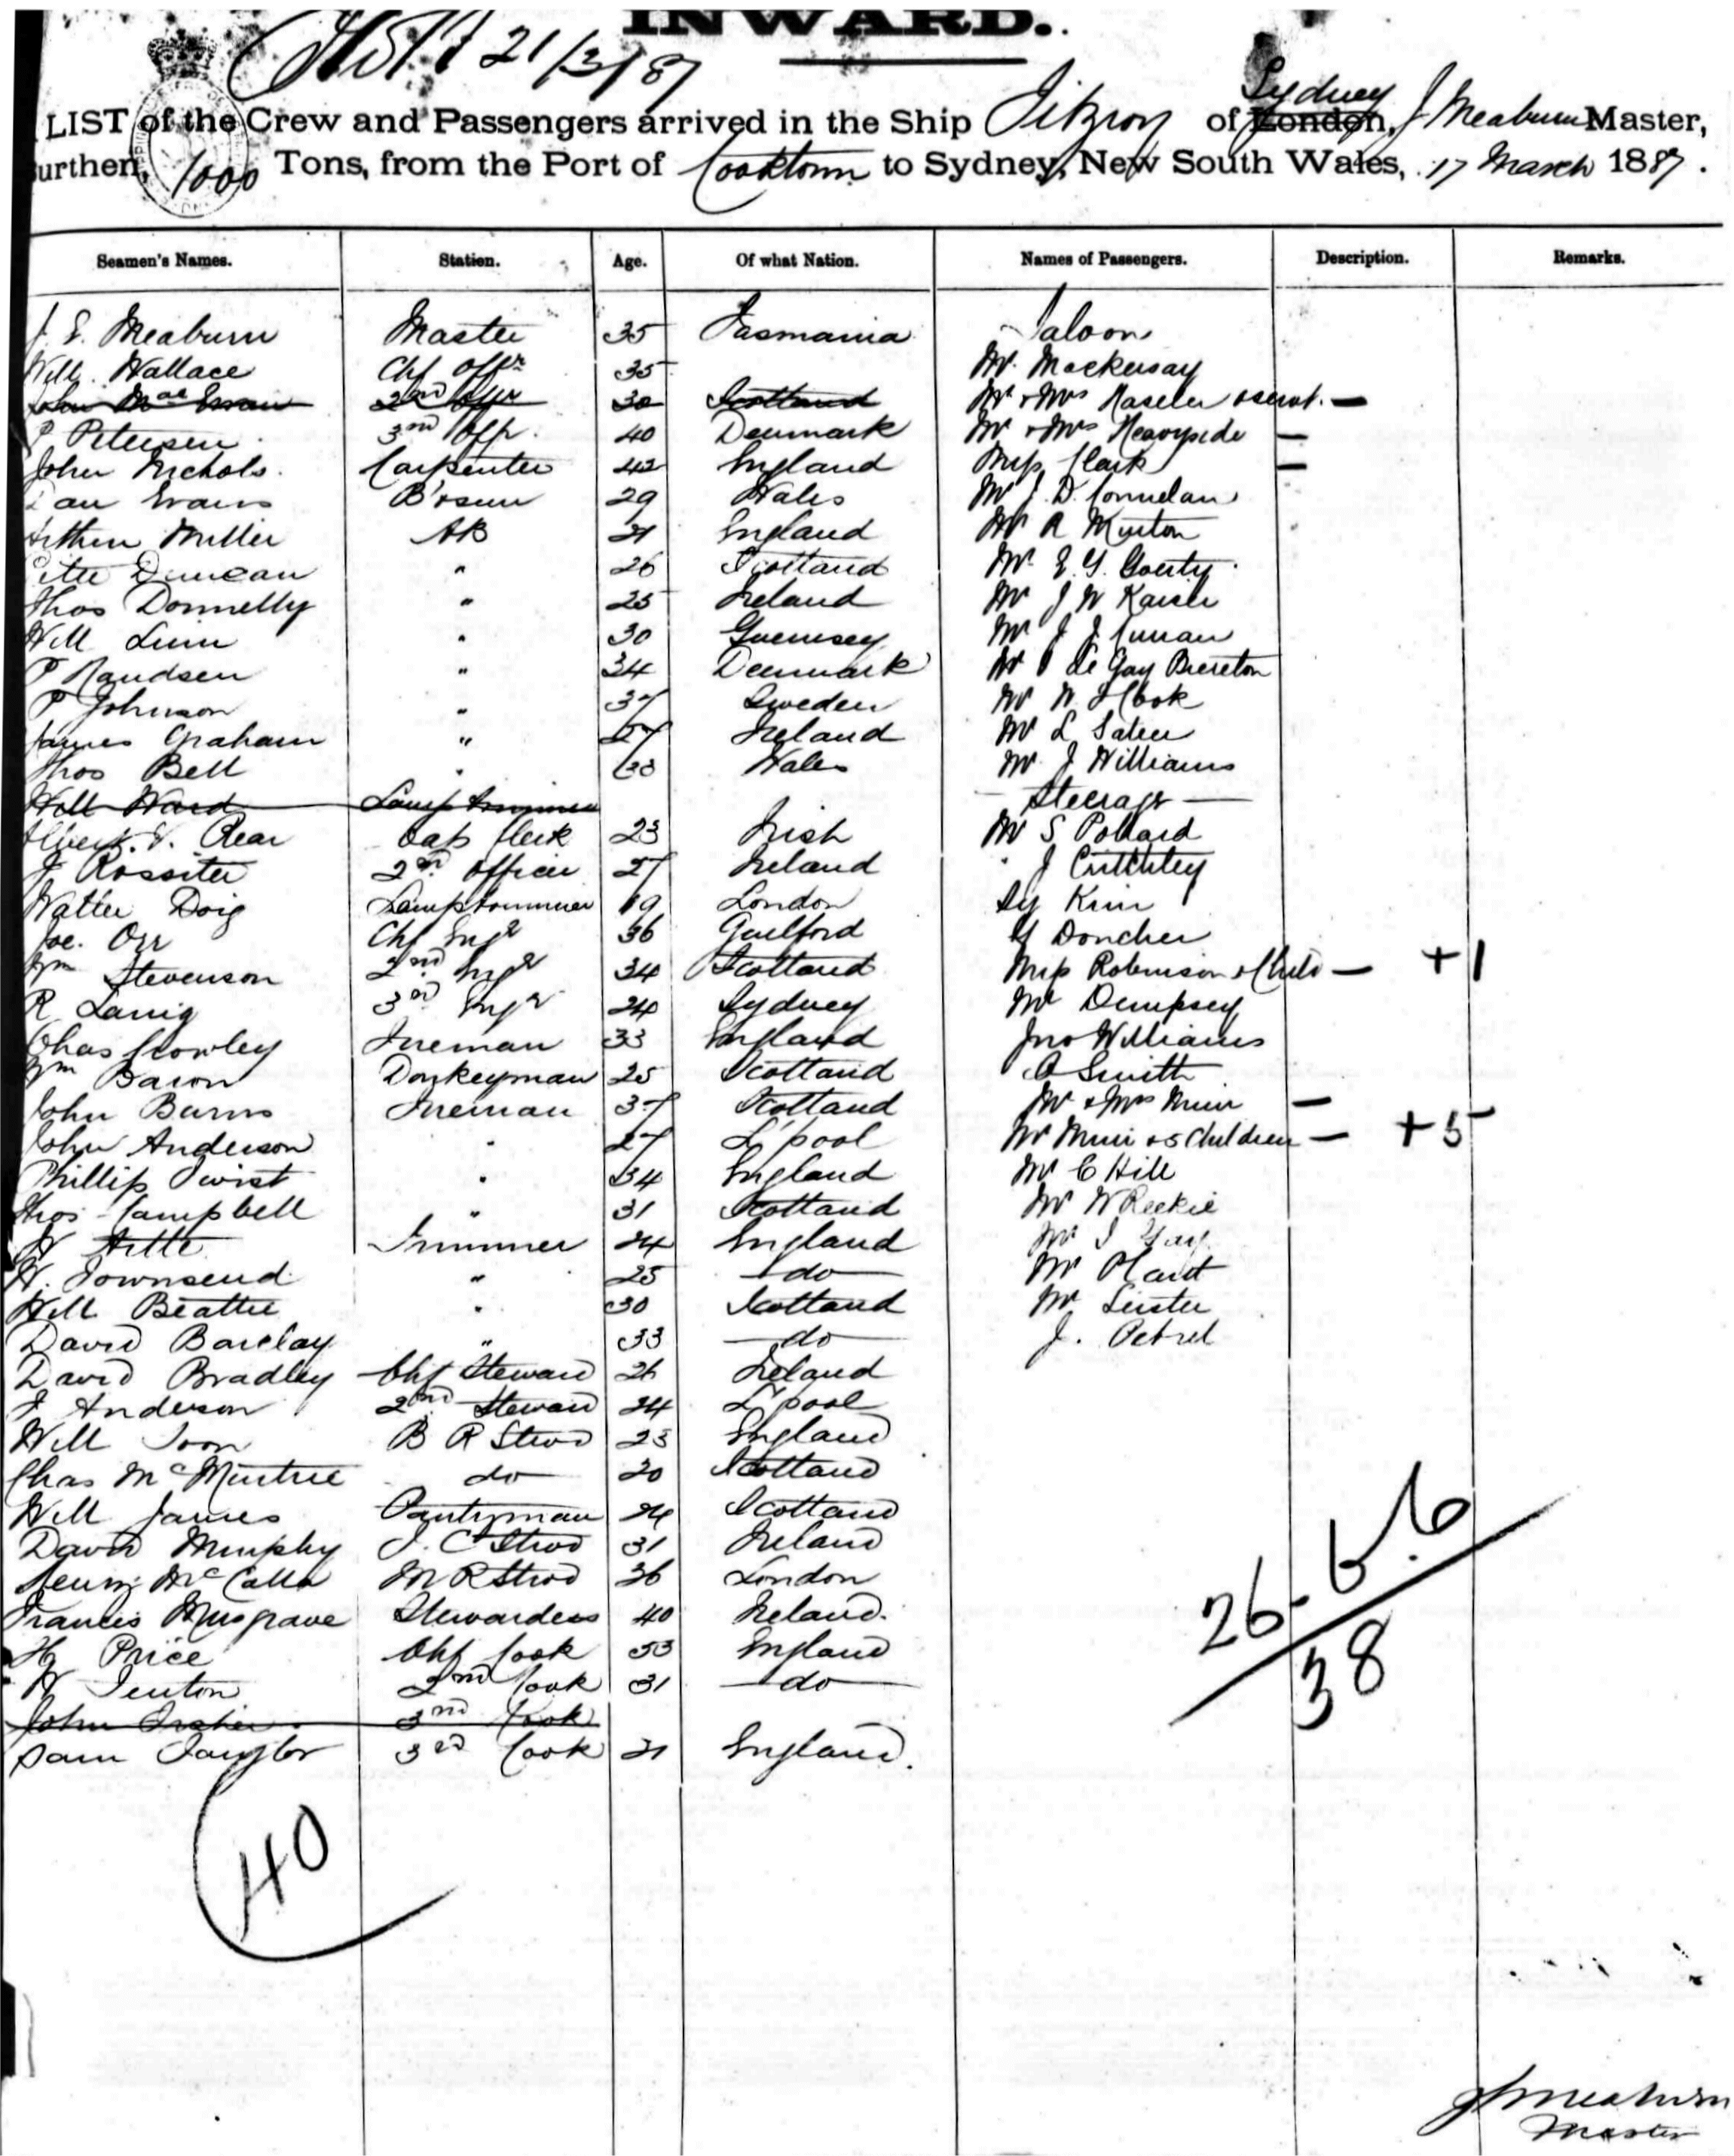 INWARD.
21/3/87
LIST of the Crew and Passengers arrived in the Ship Fitzroy of London, Sydney J Meaburn Master,
Burthen, 1000 Tons, from the Port of Cooktown to Sydney, New South Wales, 17 March 1887.
Seamen's Names. Station. Age. Of what Nation. Names of Passengers. Description. Remarks.
J. E. Meaburn Master 35 Tasmania Saloon
Will. Wallace Chf Offr 35 Mr. Mackersay
2nd Offr 30 Scotland Mr & Mrs & servt. —
P Petersen 3rd Offr. 40 Denmark Mr & Mrs Heavyside —
John Nichols. Carpenter 42 England Miss Clark —
Dan Evans B'osun 29 Wales Mr J. D. Connelan
Arthur Miller AB 21 England Mr R Murton
Peter Duncan " 26 Scotland Mr. E. G.
Thos Donnelly " 25 Ireland Mr J W Kaiser
Will " 30 Guernsey Mr J J Curran
P " 34 Denmark Mr J Le Gay Brereton
P Johnson " 37 Sweden Mr W. J Cook
James Graham " 27 Ireland Mr L
Thos Bell " 33 Wales Mr. J Williams
Will Ward Lamp trimmer — Steerage —
Albert. V. Rear Cap Clerk 23 Irish Mr S Pollard
J Rossiter 2nd Officer 27 Ireland " J Critchley
Walter Doig Lamptrimmer 19 London
Joe. Orr Chf Engr 36 Guilford Y Doncher
Wm Stevenson 2nd Engr 34 Scotland Miss Robinson & Child — +1
R Laing 3rd Engr 24 Sydney Mr Dempsey
Chas Crowley Fireman 33 England Jno Williams
Wm Baron Donkeyman 25 Scotland A Smith
John Burns Fireman 37 Scotland Mr & Mrs Muir —
John Anderson " 27 L'pool Mr Muir & 5 Children — +5
Phillip Twist " 34 England Mr C Hill
Thos Campbell " 31 Scotland Mr W Reekie
W Trimmer 24 England Mr J Gay
W. Townsend " 25 do Mr Plant
Will Beattie " 30 Scotland Mr Lester
David Barclay " 33 do J. Petrel
David Bradley Chf Steward 26 Ireland
J Anderson 2nd Steward 24 L'pool
Will Toon B R Stwd 23 England
Chas McMintrie do 20 Scotland
Will James Pantryman 24 Scotland
David Murphy F. C Stwd 31 Ireland
Henry McCalla M R Stwd 36 London
Frances Musgrave Stewardess 40 Ireland.
H Price Chf Cook 53 England
W Fenton 2nd Cook 31 do
John 3rd Cook
Sam Taylor 3rd Cook 21 England.
26. 6. 6
38
40
J Meaburn
Master